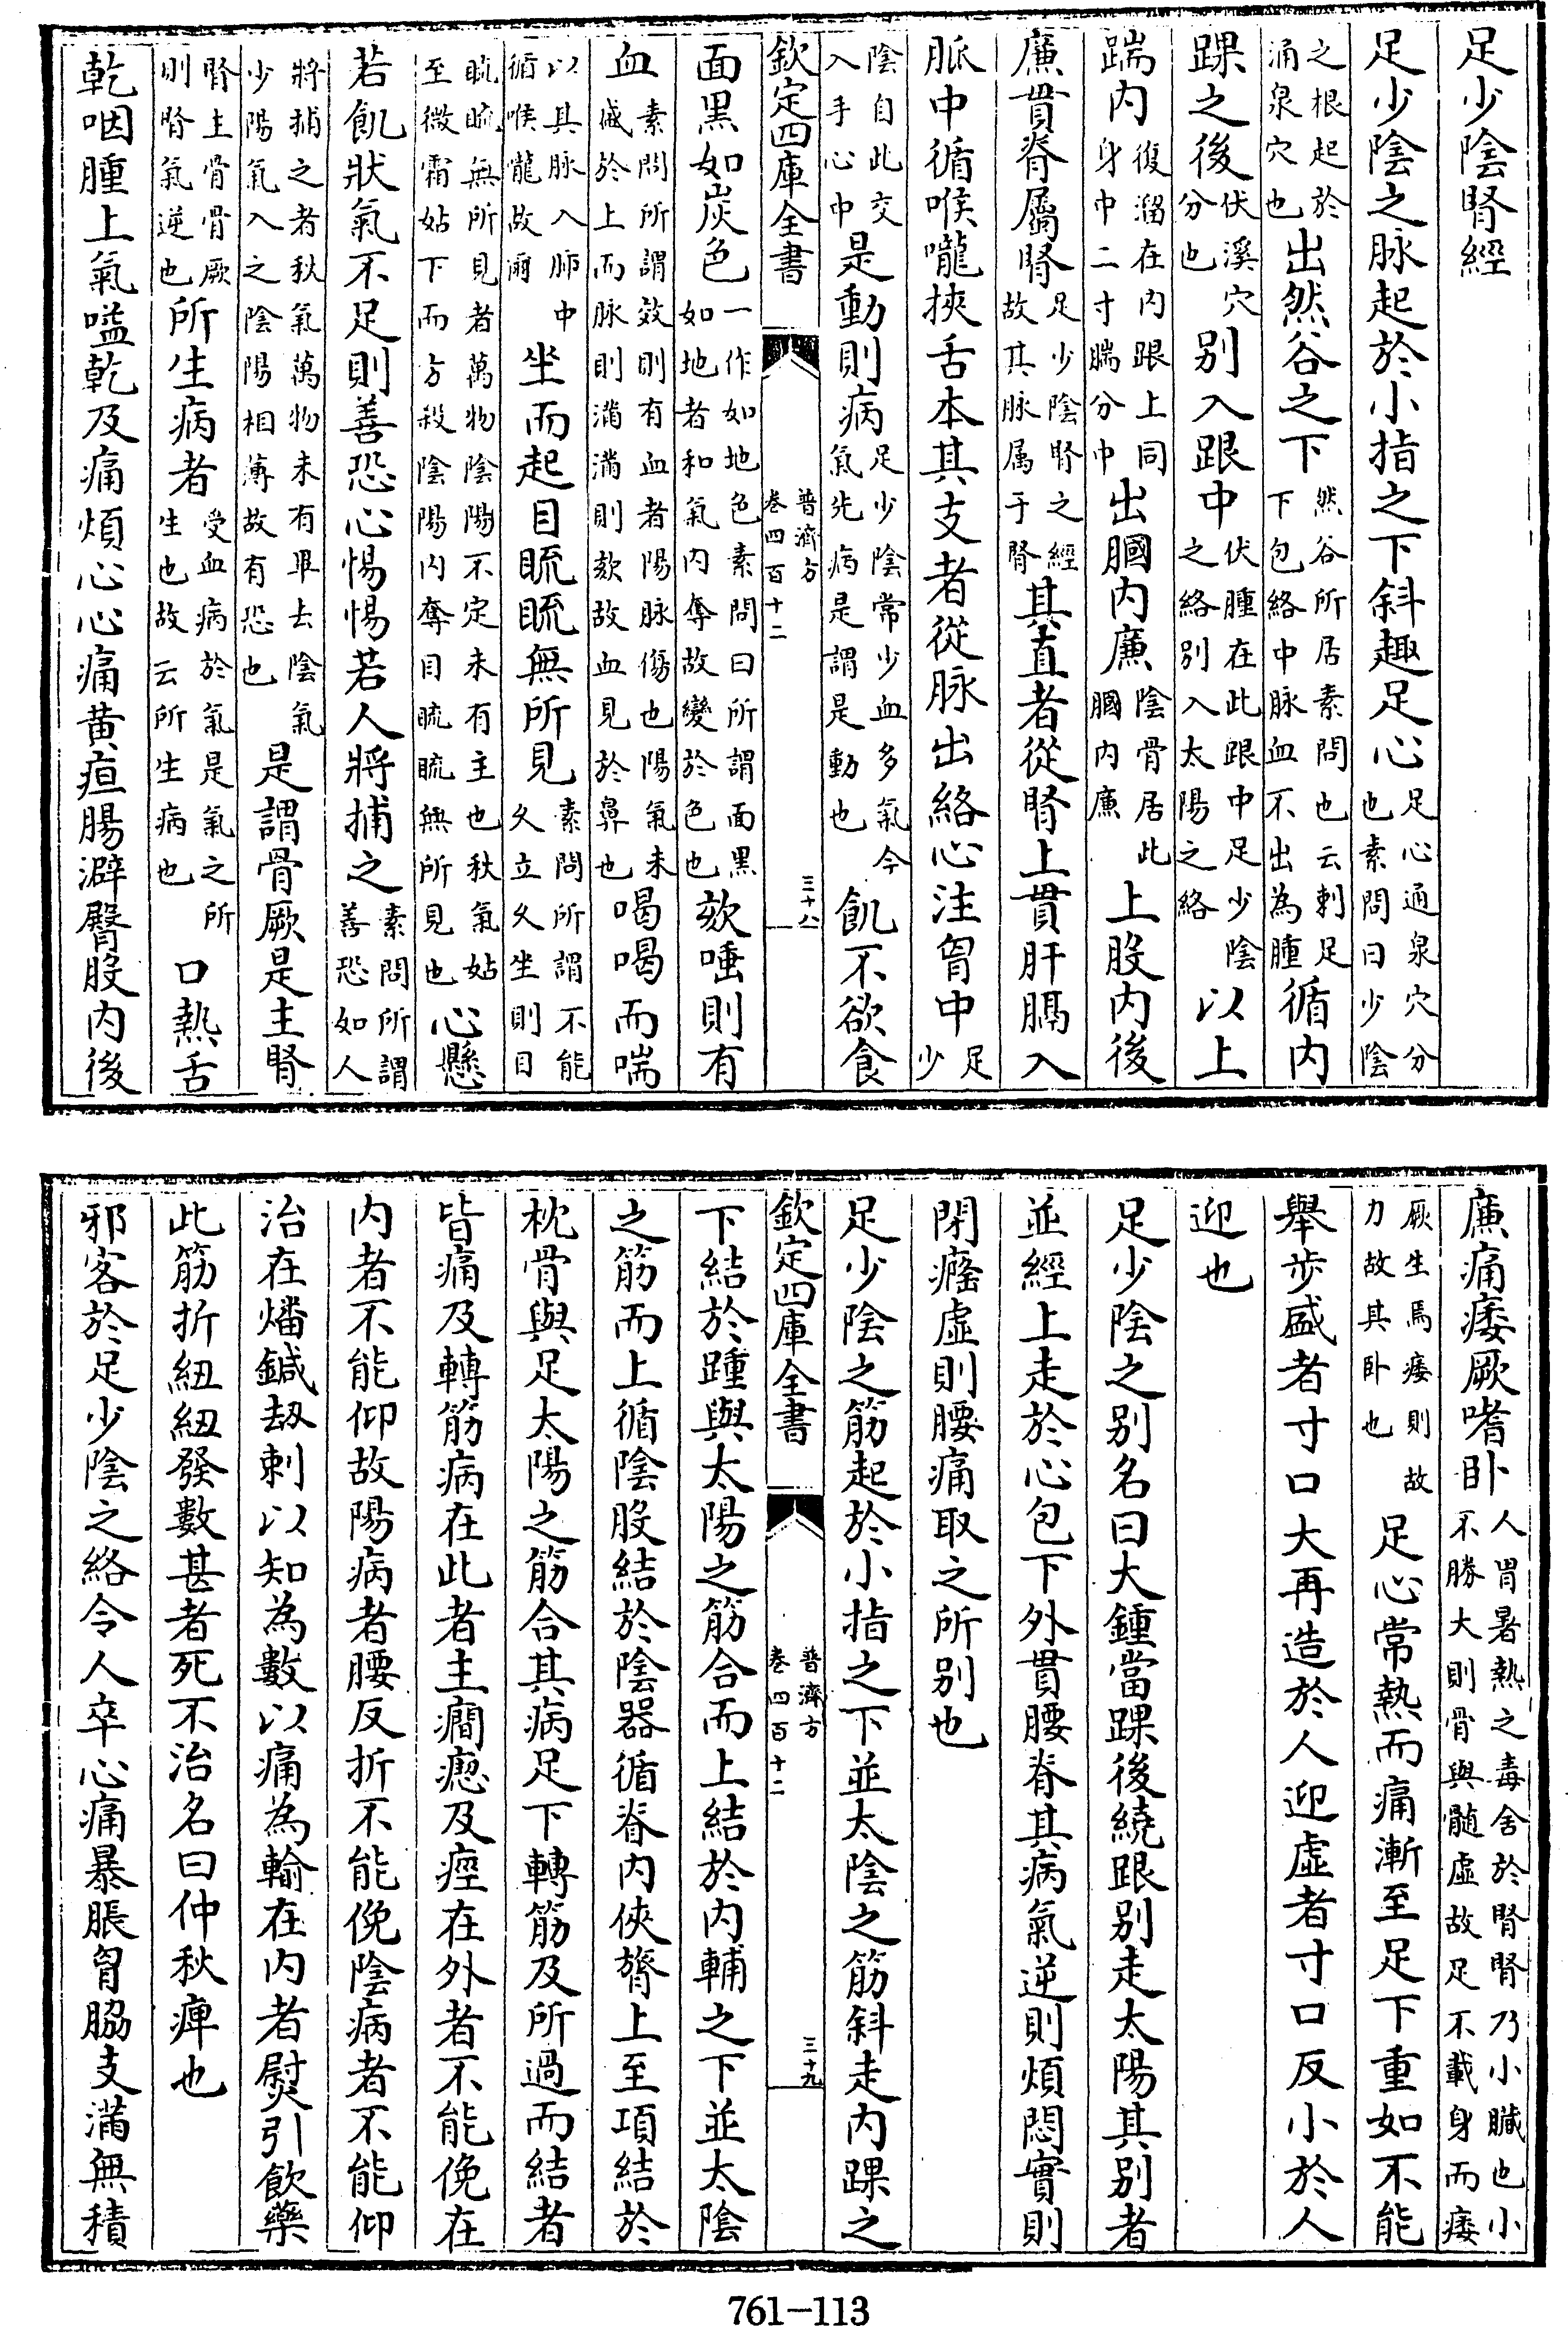 足少陰腎經
足少陰之脉起於小指之下斜趣足心足心通泉穴分也素問曰少陰
之根起於涌泉穴也出然谷之下然谷所居素問也云刺足下包絡中脉血不出為腫循内
踝之後伏溪穴分也别入跟中伏腫在此跟中足少陰之絡别入太陽之絡以上
踹内復溜在内跟上同身中二寸腨分中出膕内廉陰骨居此膕内廉上股内後
廉貫脊屬腎足少陰腎之經故其脉属于腎其直者從腎上貫肝膈入
脈中循喉嚨挾舌本其支者從脉出絡心注胷中足少
陰自此交入手心中是動則病足少陰常少血多氣今氣先病是謂是動也飢不欲食
欽定四庫全書 普濟方 卷四百十二 三十八
面黑如炭色一作如地色素問曰所謂面黑如地者和氣内奪故變於色也欬唾則有
血素問所謂效則有血者陽脉傷也陽氣未盛於上而脉則滿滿則欬故血見於鼻也喝喝而喘
以其脉入肺中循喉嚨故爾坐而起目䀮䀮無所見素問所謂不能久立久坐則目
䀮䀮無所見者萬物陰陽不定未有主也秋氣始至微霜始下而方殺陰陽内奪目䀮䀮無所見也心懸
若飢狀氣不足則善恐心惕惕若人將捕之素問所謂善恐如人
將捕之者秋氣萬物未有畢去陰氣少陽氣入之陰陽相薄故有恐也是謂骨厥是主腎
腎主骨骨厥則腎氣逆也所生病者受血病於氣是氣之所生也故云所生病也口熱舌
乾咽腫上氣嗌乾及痛煩心心痛黄疸腸澼臀股内後
廉痛痿厥嗜卧人冒暑熱之毒舍於腎腎乃小臟也小不勝大則骨與髄虚故足不載身而痿
厥生焉痿則故力故其卧也足心常熱而痛漸至足下重如不能
舉步盛者寸口大再造於人迎虚者寸口反小於人
迎也
足少陰之别名曰大鍾當踝後繞跟别走太陽其别者
並經上走於心包下外貫腰脊其病氣逆則煩悶實則
閉癃虚則腰痛取之所别也
足少陰之筋起於小指之下並太陰之筋斜走内踝之
欽定四庫全書 普濟方 卷四百十二 三十九
下結於踵與太陽之筋合而上結於内輔之下並太陰
之筋而上循陰股結於陰器循脊内俠膂上至項結於
枕骨與足太陽之筋合其病足下轉筋及所過而結者
皆痛及轉筋病在此者主癎瘛及痙在外者不能俛在
内者不能仰故陽病者腰反折不能俛陰病者不能仰
治在燔鍼刼刺以知為數以痛為輸在内者熨引飲藥
此筋折紐紐發數甚者死不治名曰仲秋痺也
邪客於足少陰之絡令人卒心痛暴脹胷脇支滿無積
761-113